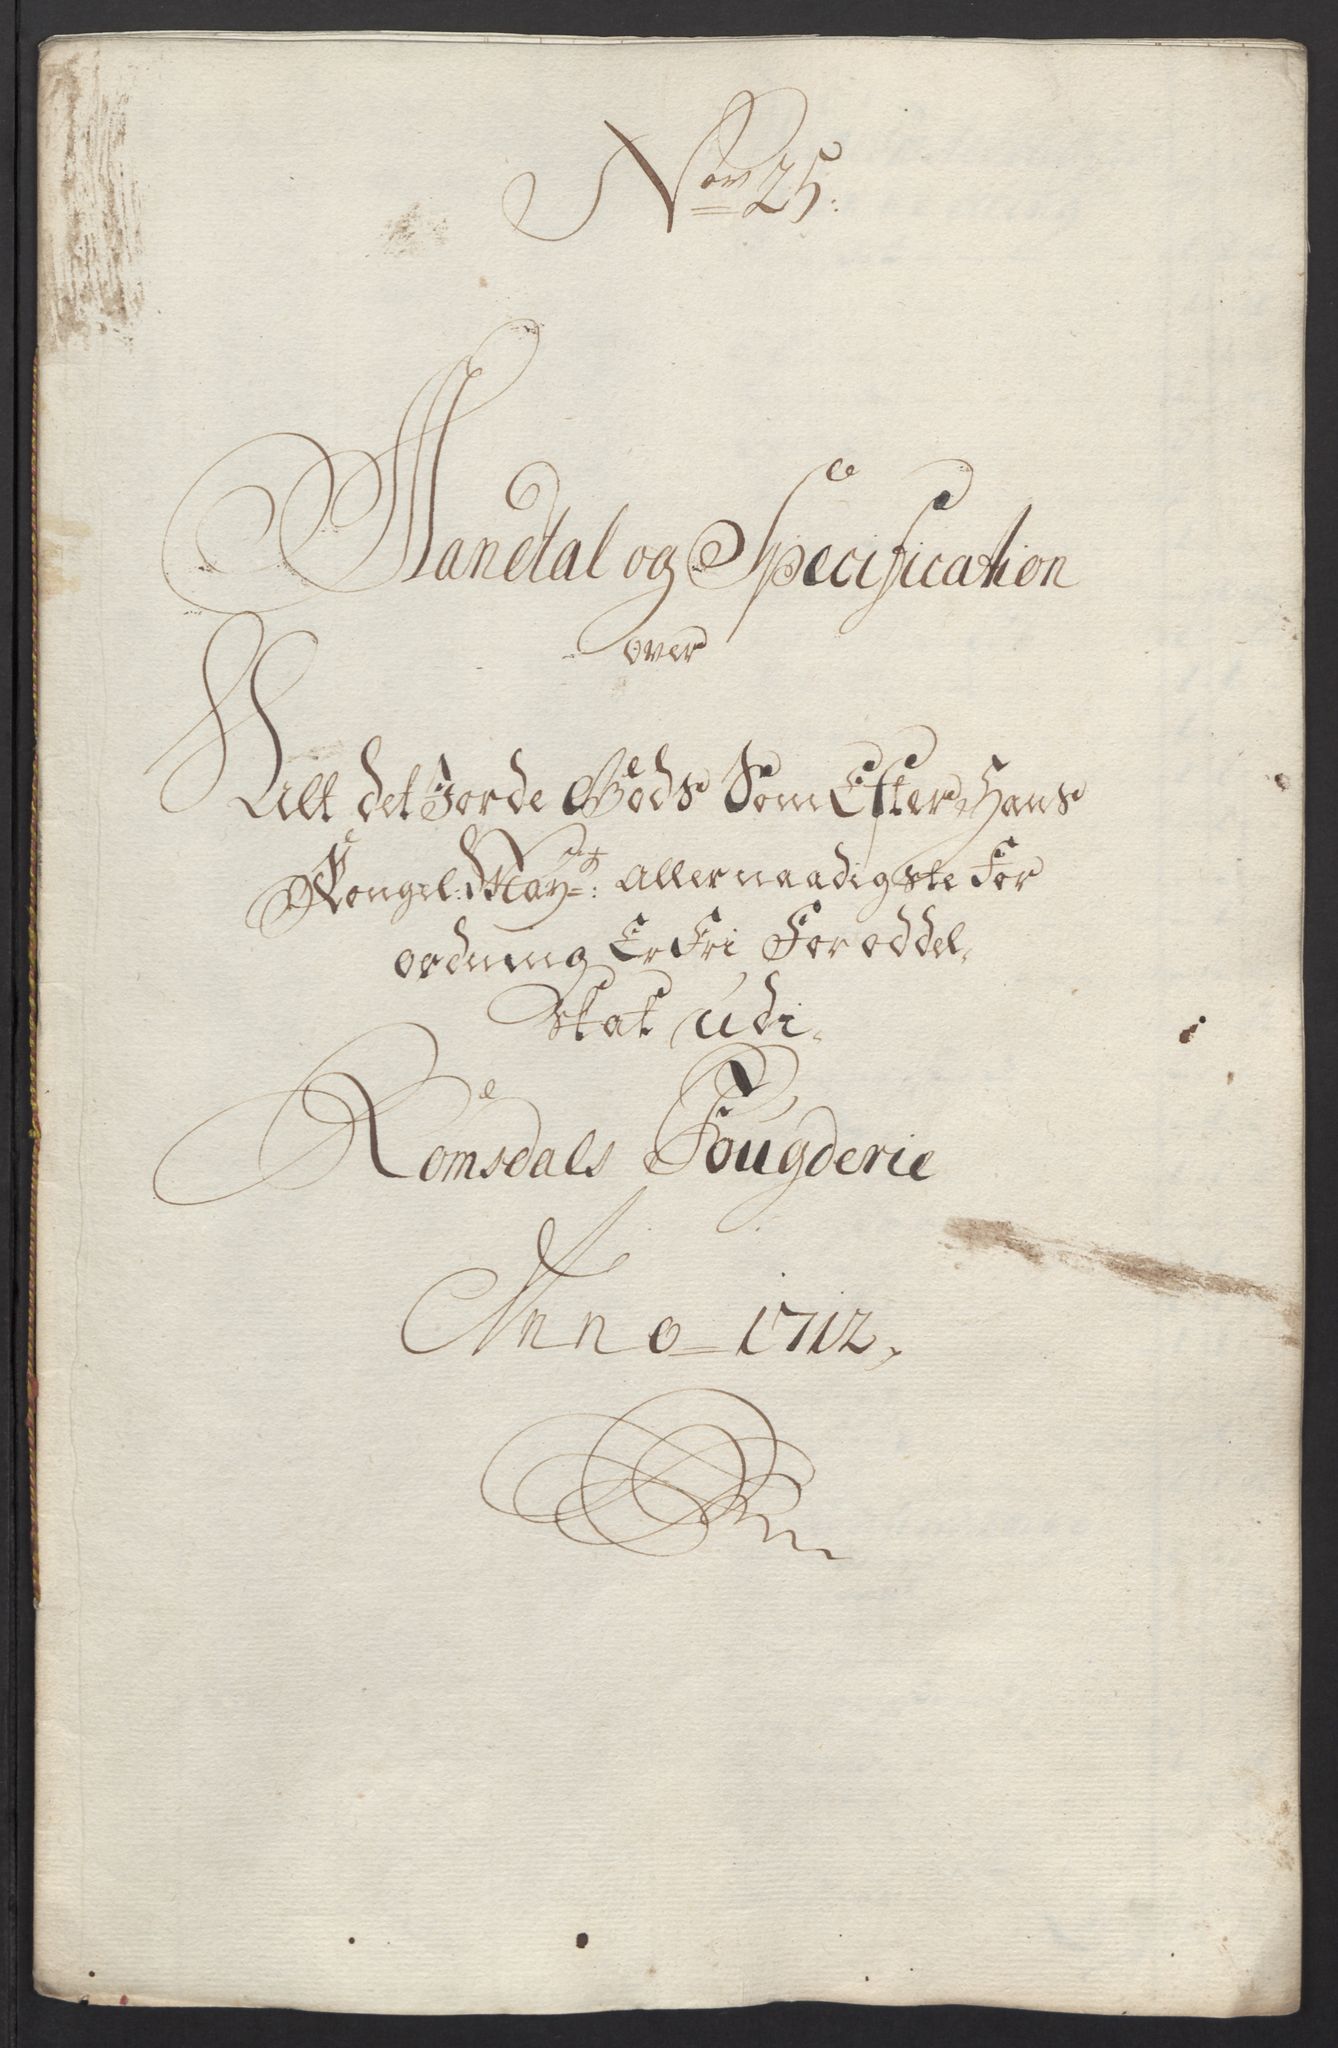 Nor 25:
Mandtal og Specification
over
Alt det Jorde Gods Som Efter Hans
Kongel: Mayts: Allernaadigste For
ordning Er Fri For oddel,
skat udi,
Romsdals Fougderie
Anno 1712,